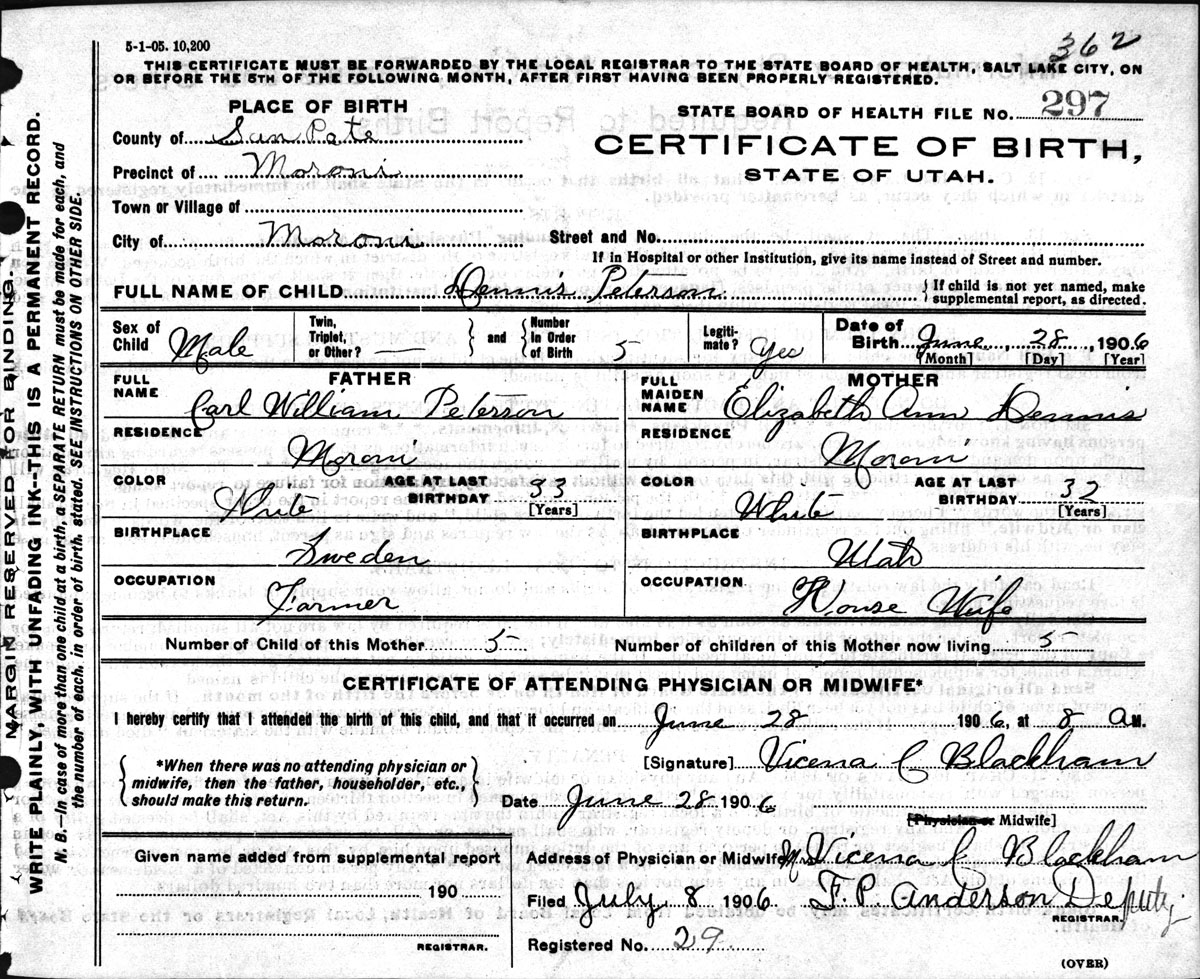 5-1-05. 10,200
362
THIS CERTIFICATE MUST BE FORWARDED BY THE LOCAL REGISTRAR TO THE STATE BOARD OF HEALTH, SALT LAKE CITY, ON
OR BEFORE THE 5TH OF THE FOLLOWING MONTH, AFTER FIRST HAVING BEEN PROPERLY REGISTERED.
MARGIN RESERVED FOR BINDING.
WRITE PLAINLY, WITH UNFADING INK--THIS IS A PERMANENT RECORD.
N. B.--In case of more than one child at a birth, a SEPARATE RETURN must be made for each, and
the number of each, in order of birth, stated. SEE INSTRUCTIONS ON OTHER SIDE.
PLACE OF BIRTH
County of San Pete
Precinct of Moroni
Town or Village of
City of Moroni
STATE BOARD OF HEALTH FILE No. 297
CERTIFICATE OF BIRTH,
STATE OF UTAH.
Street and No.
If in Hospital or other Institution, give its name instead of Street and number.
FULL NAME OF CHILD Dennis Peterson
If child is not yet named, make
supplemental report, as directed.
Sex of Child Male
Twin, Triplet, or Other? —
and
Number in Order of Birth 5
Legiti-mate? Yes
Date of Birth June 28, 1906
[Month] [Day] [Year]
FATHER
FULL NAME Carl William Peterson
RESIDENCE Moroni
COLOR White
AGE AT LAST BIRTHDAY 33
[Years]
BIRTHPLACE Sweden
OCCUPATION Farmer
MOTHER
FULL MAIDEN NAME Elizabeth Ann Dennis
RESIDENCE Moroni
COLOR White
AGE AT LAST BIRTHDAY 32
[Years]
BIRTHPLACE Utah
OCCUPATION House Wife
Number of Child of this Mother 5
Number of children of this Mother now living 5
CERTIFICATE OF ATTENDING PHYSICIAN OR MIDWIFE*
I hereby certify that I attended the birth of this child, and that it occurred on June 28 1906, at 8 a M.
*When there was no attending physician or
midwife, then the father, householder, etc.,
should make this return.
[Signature] Vicena C Blackham
Date June 28 1906
[Physician or Midwife]
Given name added from supplemental report
190
REGISTRAR.
Address of Physician or Midwife Mrs Vicena C Blackham
Filed July 8 1906 F. P. Anderson Deputy
REGISTRAR.
Registered No. 29
(OVER)